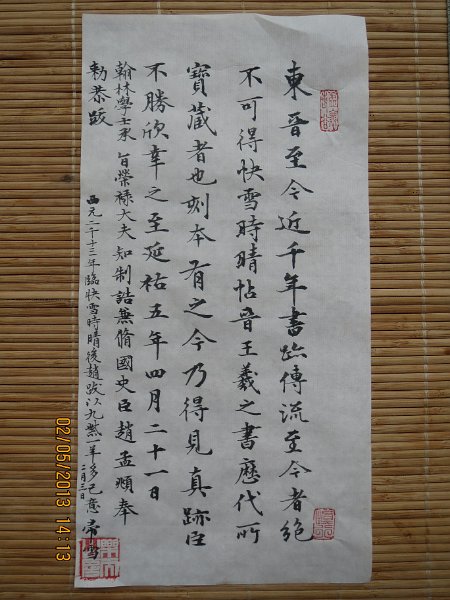 東晉至今近千年書跡傳流至今者絕
不可得快雪時晴帖晉王羲之書歷代所
寶藏者也刻本有之今乃得見真跡臣
不勝欣幸之至延祐五年四月二十一日
翰林學士承旨榮祿大夫知制誥兼脩國史臣趙孟頫奉
勅恭跋
西元二千十三年臨快雪時晴後趙跋以九紫一羊多己意
二月三日
02/05/2013 14:13